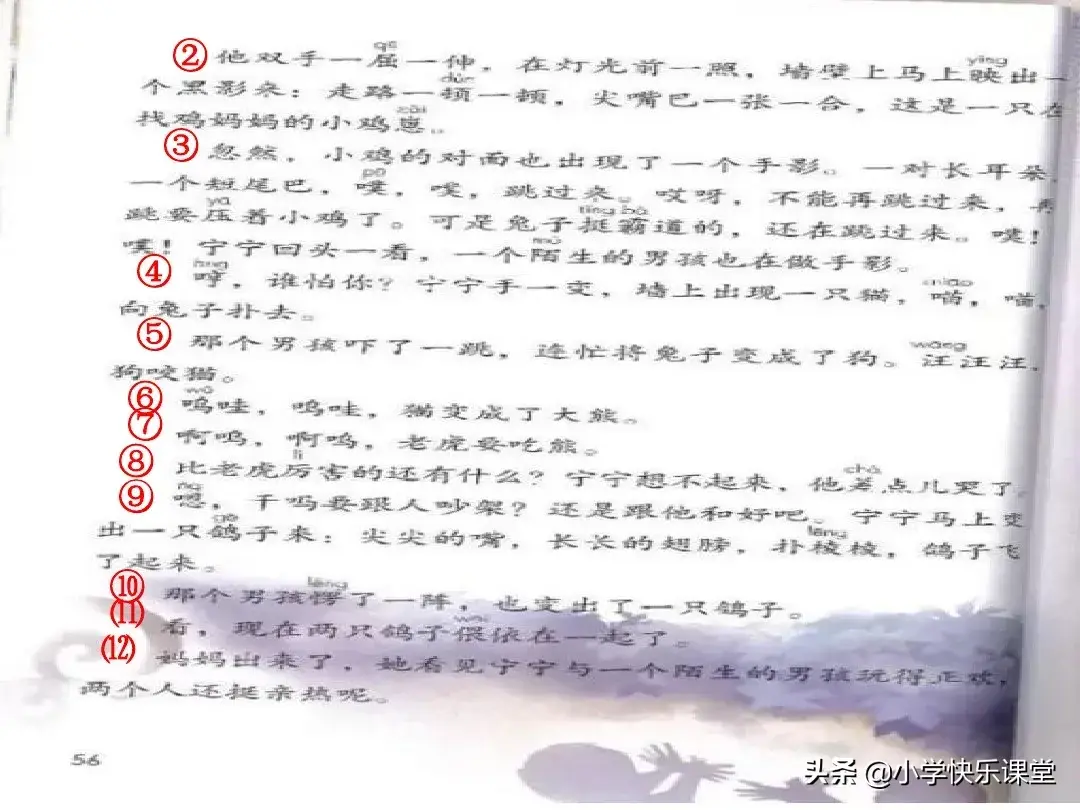 qū
② 他双手一屈一伸，在灯光前一照，墙壁上马上映出一
yìng
个黑影来：走路一顿一顿，尖嘴巴一张一合，这是一只在
dùn
zǎi
找鸡妈妈的小鸡崽。
③ 忽然，小鸡的对面也出现了一个手影。一对长耳朵，
pū
一个短尾巴，噗，噗，跳过来。哎呀，不能再跳过来，再
yā
tǐng bà
跳要压着小鸡了。可是兔子挺霸道的，还在跳过来。噗！
mò
噗！宁宁回头一看，一个陌生的男孩也在做手影。
hēng
④ 哼，谁怕你？宁宁手一变，墙上出现一只猫，喵，喵，
miāo
向兔子扑去。
⑤ 那个男孩吓了一跳，连忙将兔子变成了狗。汪汪汪，
wāng
狗咬猫。
wū
⑥ 呜哇，呜哇，猫变成了大熊。
⑦ 啊呜，啊呜，老虎要吃熊。
lì
⑧ 比老虎厉害的还有什么？宁宁想不起来，他差点儿哭了。
chà
ǹg
⑨ 嗯，干吗要跟人吵架？还是跟他和好吧。宁宁马上变
gē
léng
出一只鸽子来：尖尖的嘴，长长的翅膀，扑棱棱，鸽子飞
了起来。
lèng
⑩ 那个男孩愣了一阵，也变出了一只鸽子。
wēi
⑾ 看，现在两只鸽子偎依在一起了。
⑿ 妈妈出来了，她看见宁宁与一个陌生的男孩玩得正欢，
两个人还挺亲热呢。
56
头条 @小学快乐课堂